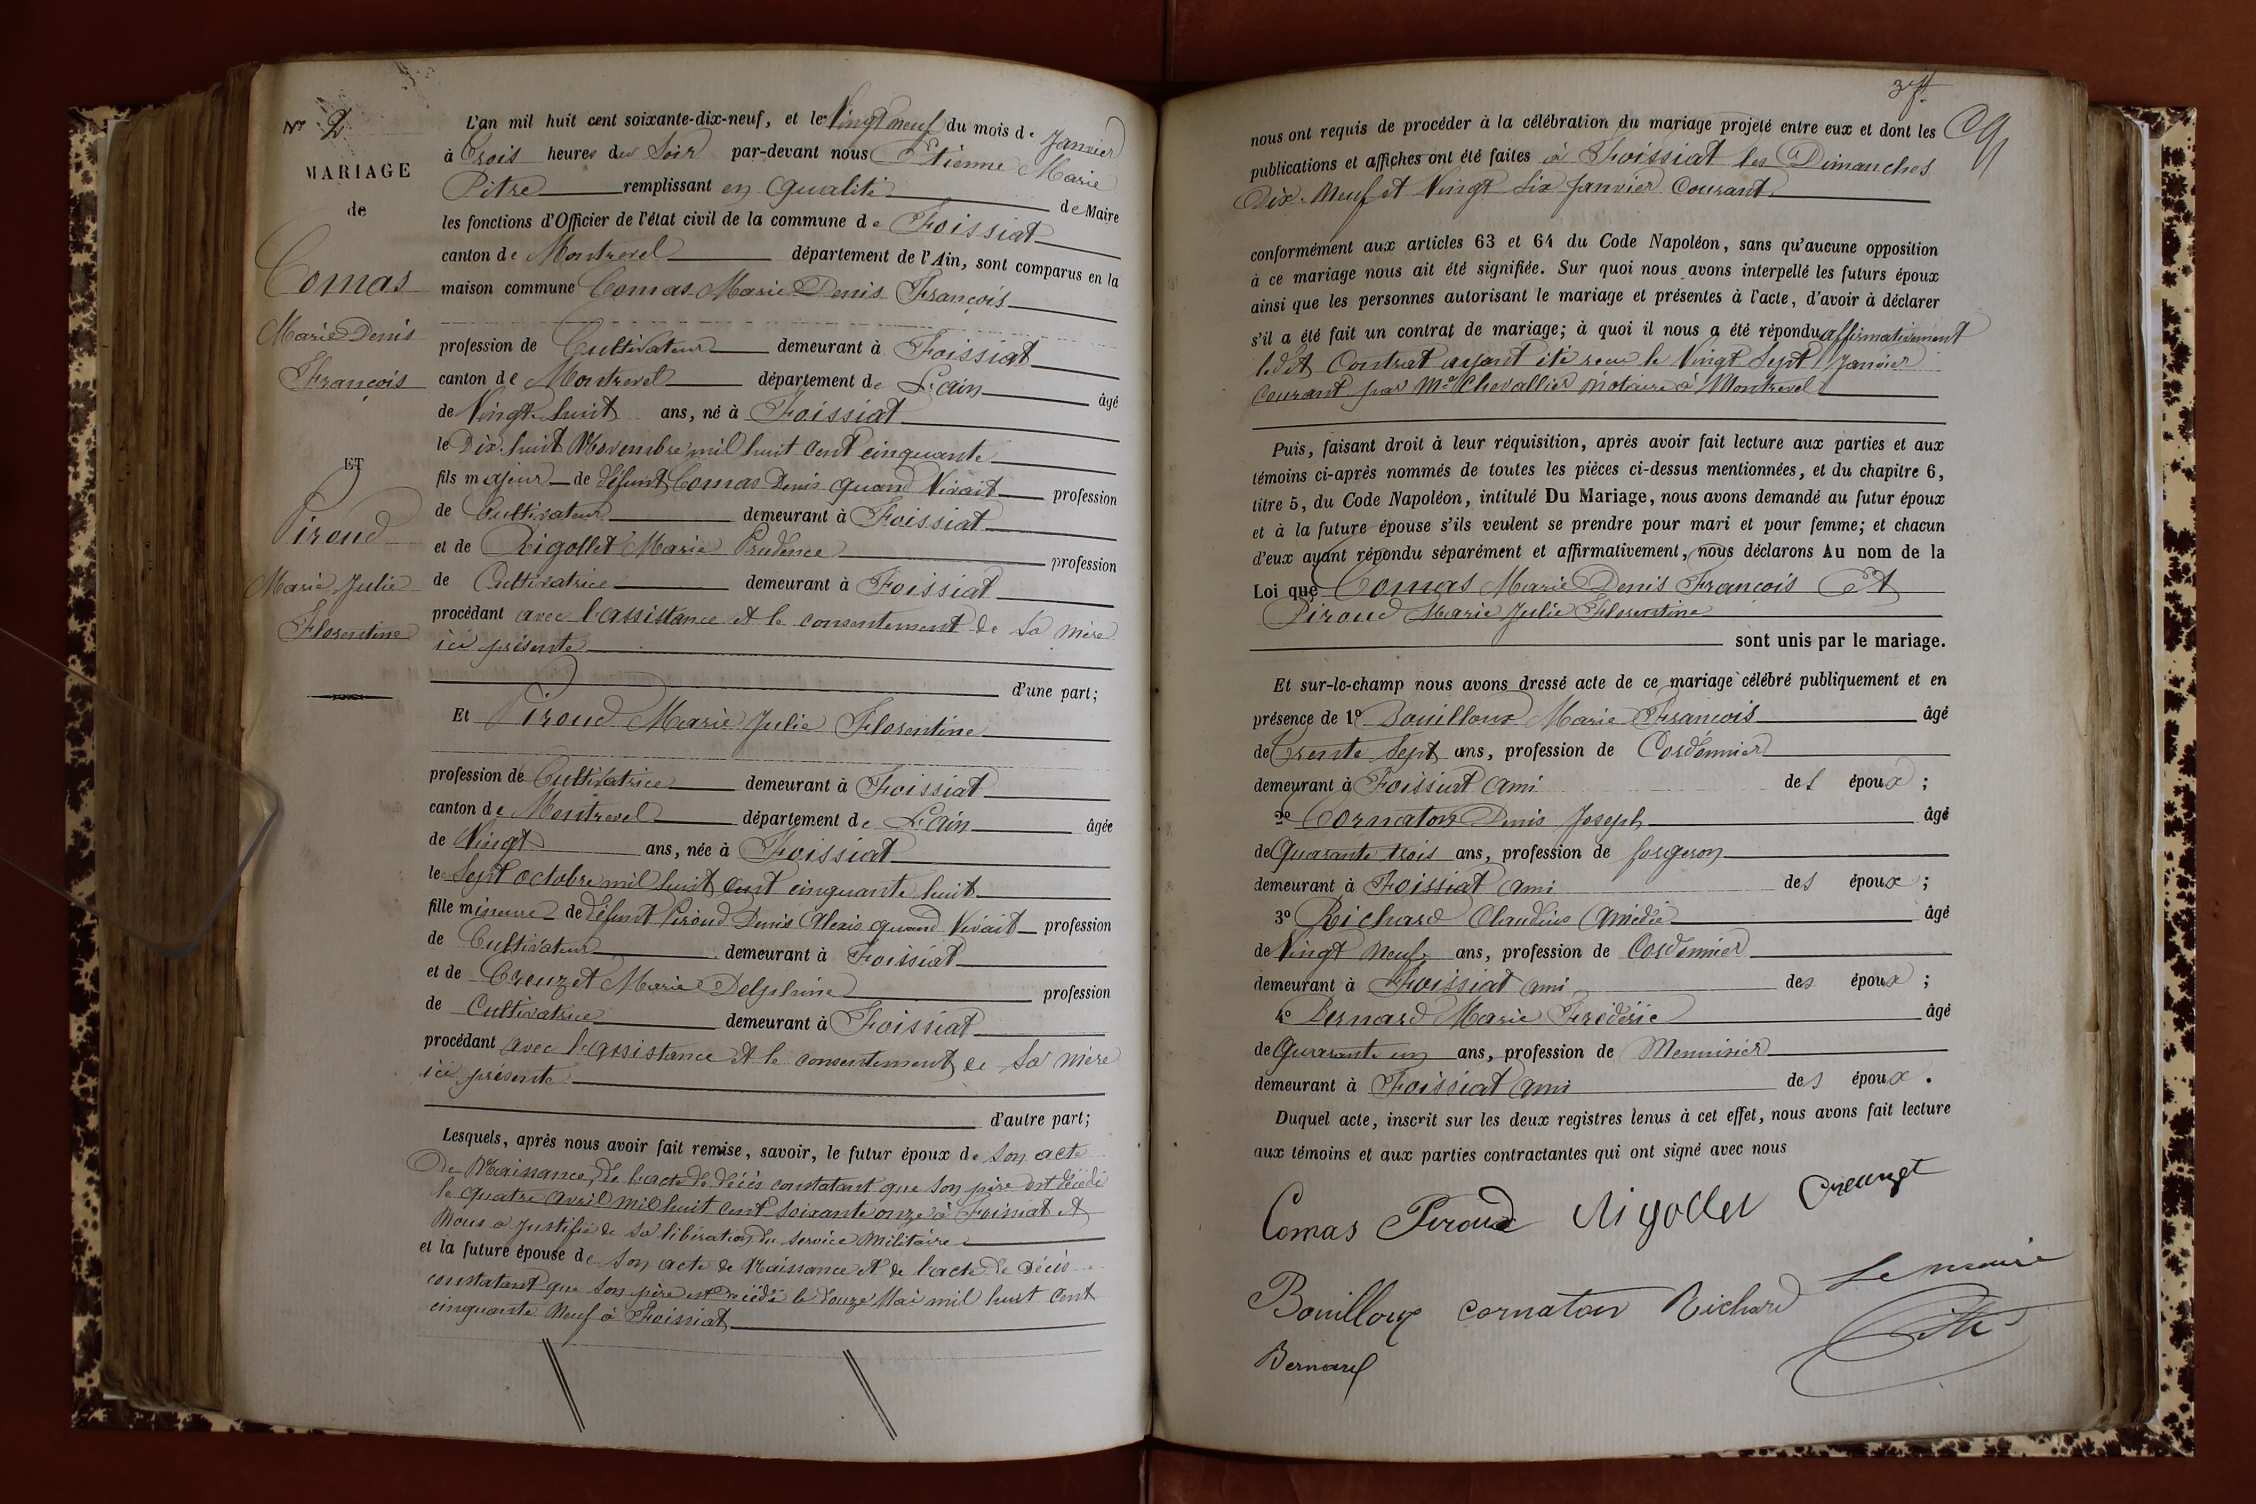 No 2
MARIAGE
de
Comas
Marie Denis
François
ET
Piroud
Marie Julie
Florentine
L'an mil huit cent soixante-dix-neuf, et le Vingt neuf du mois de Janvier
à trois heures du Soir par-devant nous Etienne Marie
Pitre remplissant en qualité de Maire
les fonctions d'Officier de l'état civil de la commune de Foissiat
canton de Montrevel département de l'Ain, sont comparus en la
maison commune Comas Marie Denis François
profession de Cultivateur demeurant à Foissiat
canton de Montrevel département de L'ain âgé
de Vingt huit ans, né à Foissiat
le Dix huit Novembre mil huit cent cinquante
fils majeur de défunt Comas Denis quand Vivait profession
de Cultivateur demeurant à Foissiat
et de Rigollet Marie Prudence profession
de Cultivatrice demeurant à Foissiat
procédant avec l'assistance et le consentement de sa mère
ici présente
d'une part;
Et Piroud Marie Julie Florentine
profession de Cultivatrice demeurant à Foissiat
canton de Montrevel département de L'ain âgée
de Vingt ans, née à Foissiat
le Sept octobre mil huit cent cinquante huit
fille mineure de défunt Piroud Denis Alexis quand Vivait profession
de Cultivateur demeurant à Foissiat
et de Creuzet Marie Delphine profession
de Cultivatrice demeurant à Foissiat
procédant avec l'assistance et le consentement de sa mère
ici présente
d'autre part;
Lesquels, après nous avoir fait remise, savoir, le futur époux de son acte
de Naissance, de l'acte de décès constatant que son père est décédé
le quatre avril mil huit cent soixante onze à Foissiat et
Nous a justifié de sa libération du service Militaire
et la future épouse de son acte de Naissance et de l'acte de décès
constatant que son père est décédé le douze Mai mil huit cent
cinquante Neuf à Foissiat
nous ont requis de procéder à la célébration du mariage projeté entre eux et dont les
publications et affiches ont été faites à Foissiat les Dimanches
Dix-Neuf et Vingt Six Janvier Courant
conformément aux articles 63 et 64 du Code Napoléon, sans qu'aucune opposition
à ce mariage nous ait été signifiée. Sur quoi nous avons interpellé les futurs époux
ainsi que les personnes autorisant le mariage et présentes à l'acte, d'avoir à déclarer
s'il a été fait un contrat de mariage; à quoi il nous a été répondu affirmativement
ledit Contrat ayant été reçu le Vingt Sept Janvier
Courant par Me Chevallier Notaire à Montrevel
Puis, faisant droit à leur réquisition, après avoir fait lecture aux parties et aux
témoins ci-après nommés de toutes les pièces ci-dessus mentionnées, et du chapitre 6,
titre 5, du Code Napoléon, intitulé Du Mariage, nous avons demandé au futur époux
et à la future épouse s'ils veulent se prendre pour mari et pour femme; et chacun
d'eux ayant répondu séparément et affirmativement, nous déclarons Au nom de la
Loi que Comas Marie Denis François Et
Piroud Marie Julie Florentine
sont unis par le mariage.
Et sur-le-champ nous avons dressé acte de ce mariage célébré publiquement et en
présence de 1o Bouilloux Marie François âgé
de Trente Sept ans, profession de Cordonnier
demeurant à Foissiat ami des époux;
2o Cornaton Denis Joseph âgé
de Quarante trois ans, profession de forgeron
demeurant à Foissiat ami des époux;
3o Richard Claudius Amédée âgé
de Vingt Neuf ans, profession de Cordonnier
demeurant à Foissiat ami des époux;
4o Bernard Marie Frédéric âgé
de Quarante un ans, profession de Menuisier
demeurant à Foissiat ami des époux.
Duquel acte, inscrit sur les deux registres tenus à cet effet, nous avons fait lecture
aux témoins et aux parties contractantes qui ont signé avec nous
Comas Piroud Rigollet Creuzet
Le maire
Bouilloux cornaton Richard Pitre
Bernard